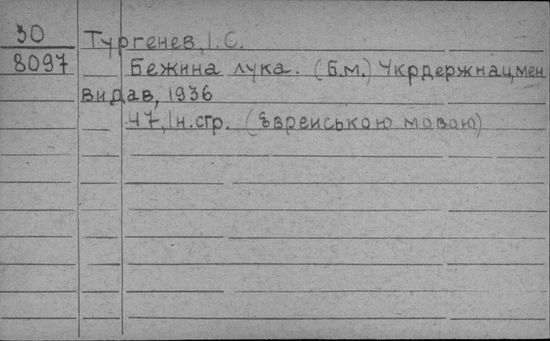 30
8097
Тургенев, І. С.
Бежина лука. (Б.м.) Укрдержнацмен
видав, 1936
47, Ін. стр. (Єврейською мовою)